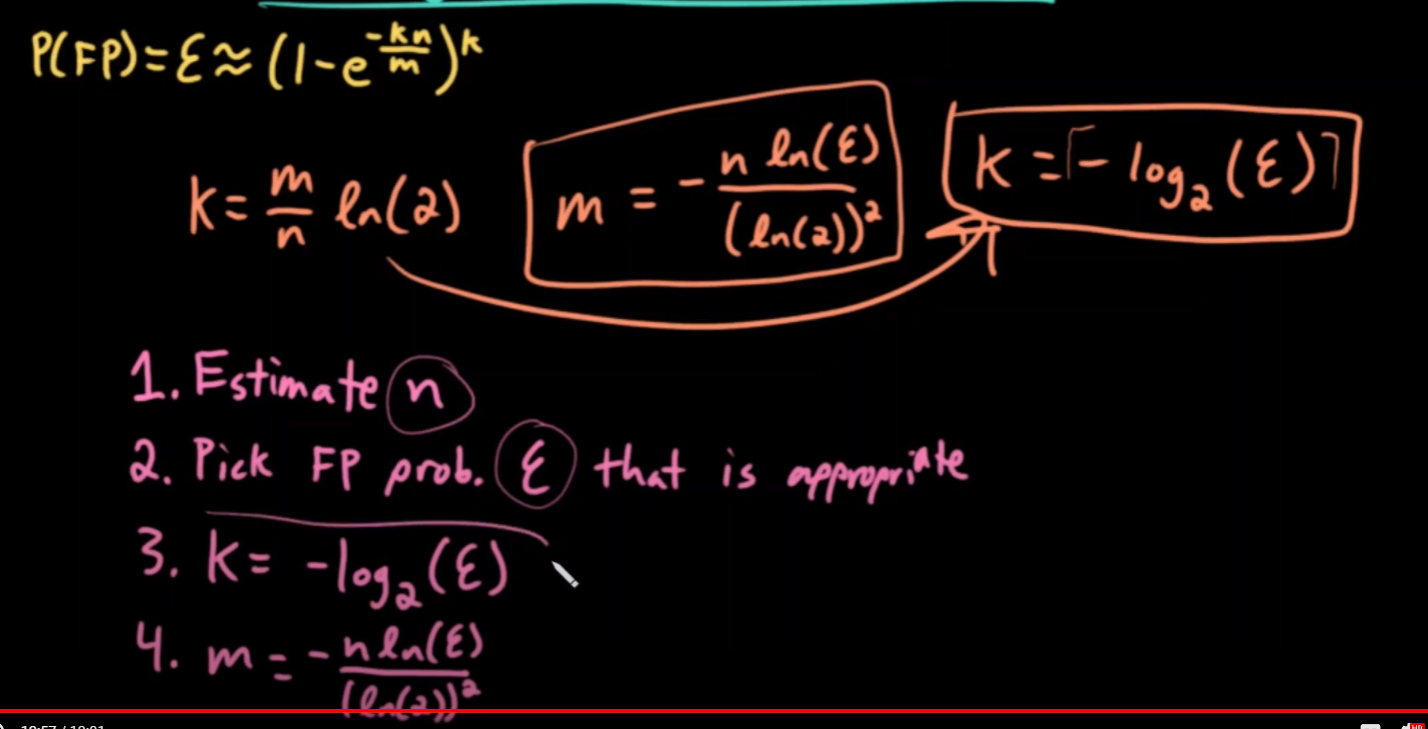 P(FP) = ε ≈ (1 - e^(-kn/m))^k
k = m/n ln(2)
m = - n ln(ε) / (ln(2))²
k = ⌈- log₂(ε)⌉
1. Estimate n
2. Pick FP prob. ε that is appropriate
3. k = -log₂(ε)
4. m = - n ln(ε) / (ln(2))²